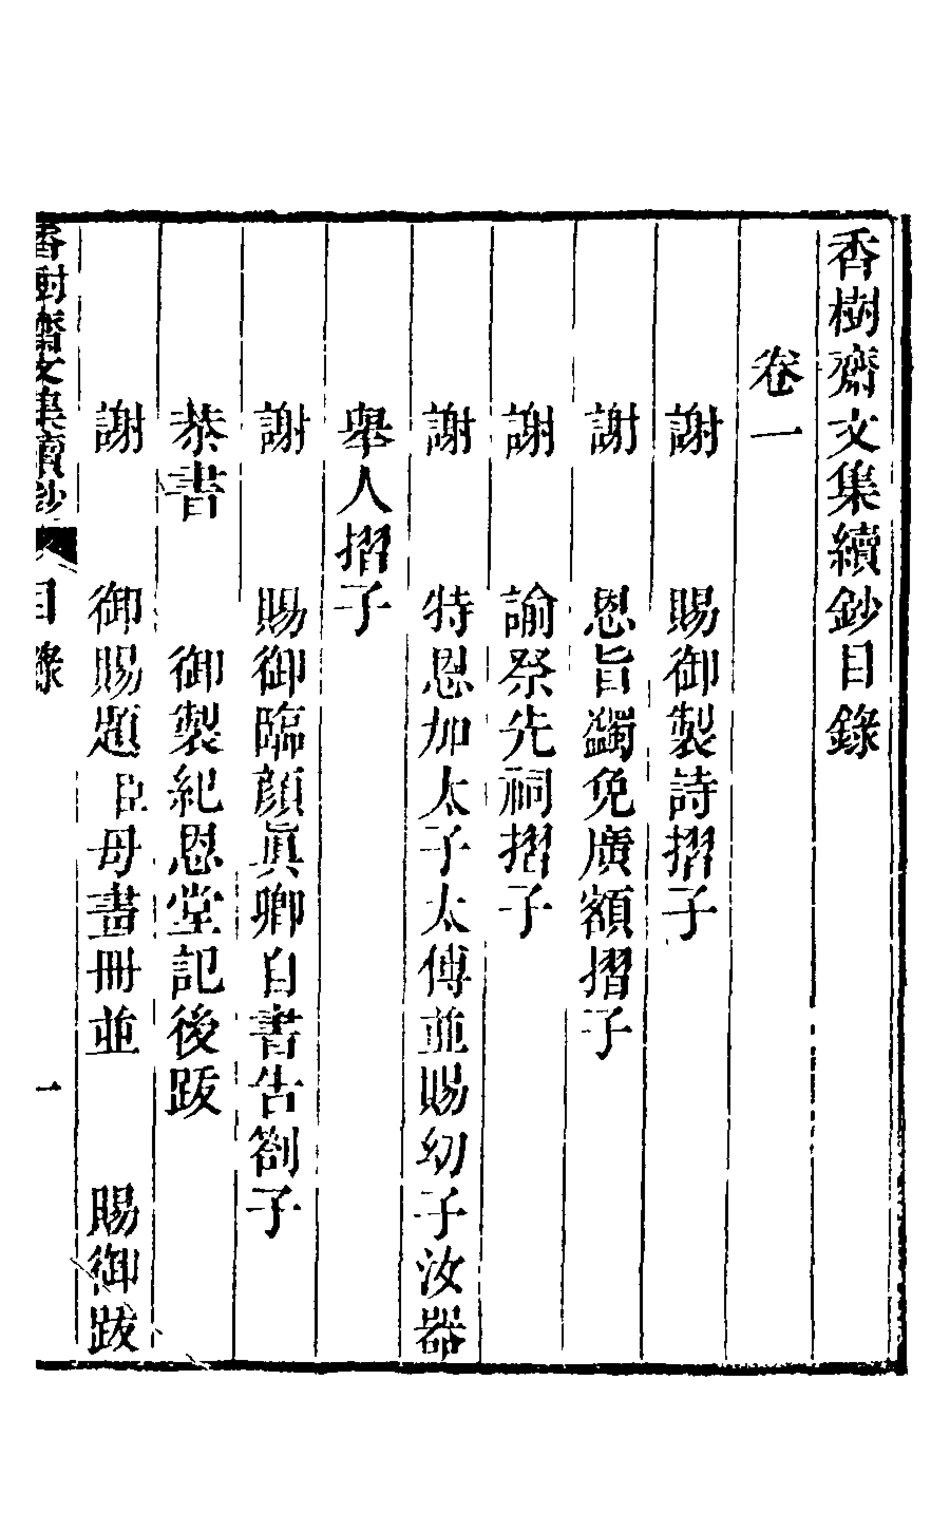 香樹齋文集續鈔目錄
卷一
謝 賜御製詩摺子
謝 恩旨蠲免廣額摺子
謝 諭祭先祠摺子
謝 特恩加太子太傅並賜幼子汝器
舉人摺子
謝 賜御臨顏眞卿自書告劄子
恭書 御製紀恩堂記後跋
謝 御賜題臣母畫冊並 賜御跋
香樹齋文集續鈔 目錄 一